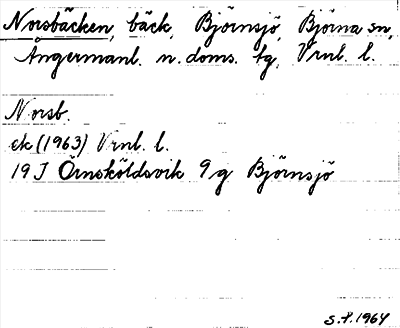 Norsbäcken, bäck, Björnsjö, Björna sn,
Ångermanl. n. doms. tg, Vrnl. l.
Norsb.
ek (1963) Vrnl. l.
19 J Örnsköldsvik 9 g Björnsjö
S.P. 1964